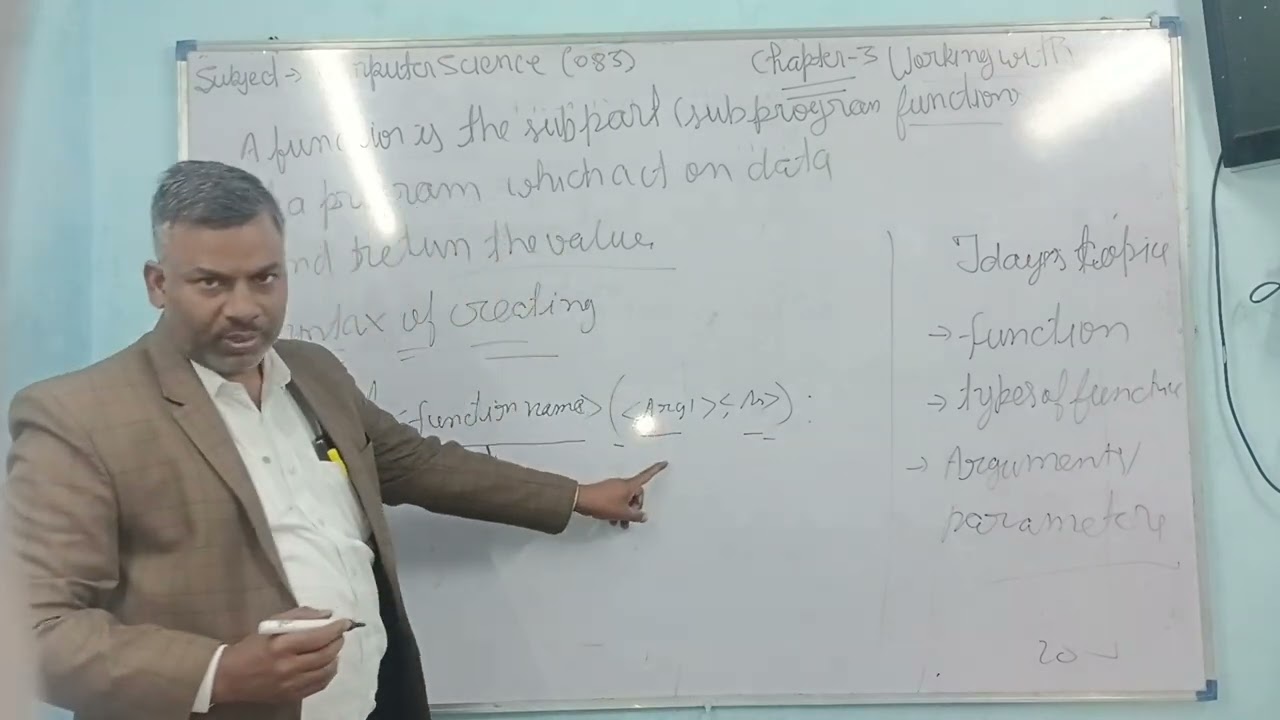 Subject → mputer Science (083)
Chapter-3 Working with
A function is the subpart (subprogram function
a program which act on data
nd return the value.
ntax of creating
<function name> (<Arg1> <, n>) :
Tdays topic
→ function
→ types of function
→ Arguments/
parameters
20